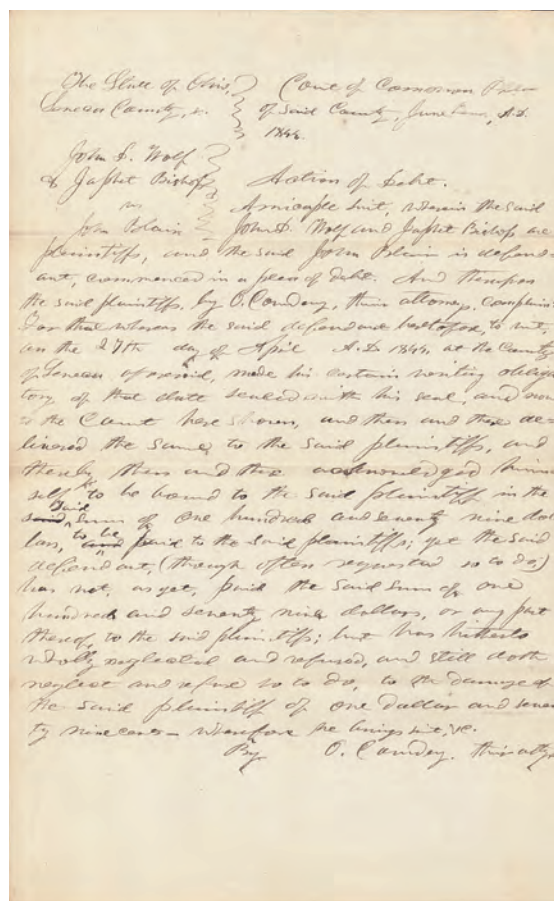 The State of Ohio,
Seneca County, ss.
Court of Common Pleas
of said County, June Term, A.D.
1844.
John S. Wolf
& Japhet Bishop
vs
John Blain
Action of Debt.
Amicable suit, wherein the said
John S. Wolf and Japhet Bishop are
plaintiffs, and the said John Blain is defend-
ant, commenced in a plea of debt. And thereupon
the said plaintiffs, by O. Cowdery, their attorney, complain
For that whereas the said defendant heretofore, to wit,
on the 27th day of April A.D. 1844, at the County
of Seneca aforesaid, made his certain writing obliga
tory of that date sealed with his seal, and now
to the Court here shown, and then and there de-
livered the same to the said plaintiffs, and
thereby then and there acknowledged him
self to be bound to the said plaintiff in the
said sum of one hundred and seventy nine dol
lars, to be paid to the said plaintiffs; yet the said
defendant, (though often requested so to do;)
has not, as yet, paid the said sum of one
hundred and seventy nine dollars, or any part
thereof, to the said plaintiffs; but has hitherto
wholly neglected and refused, and still doth
neglect and refuse so to do, to the damage of
the said plaintiff of one dollar and seven
ty nine cents wherefore he brings suit, &c.
By O. Cowdery, their atty